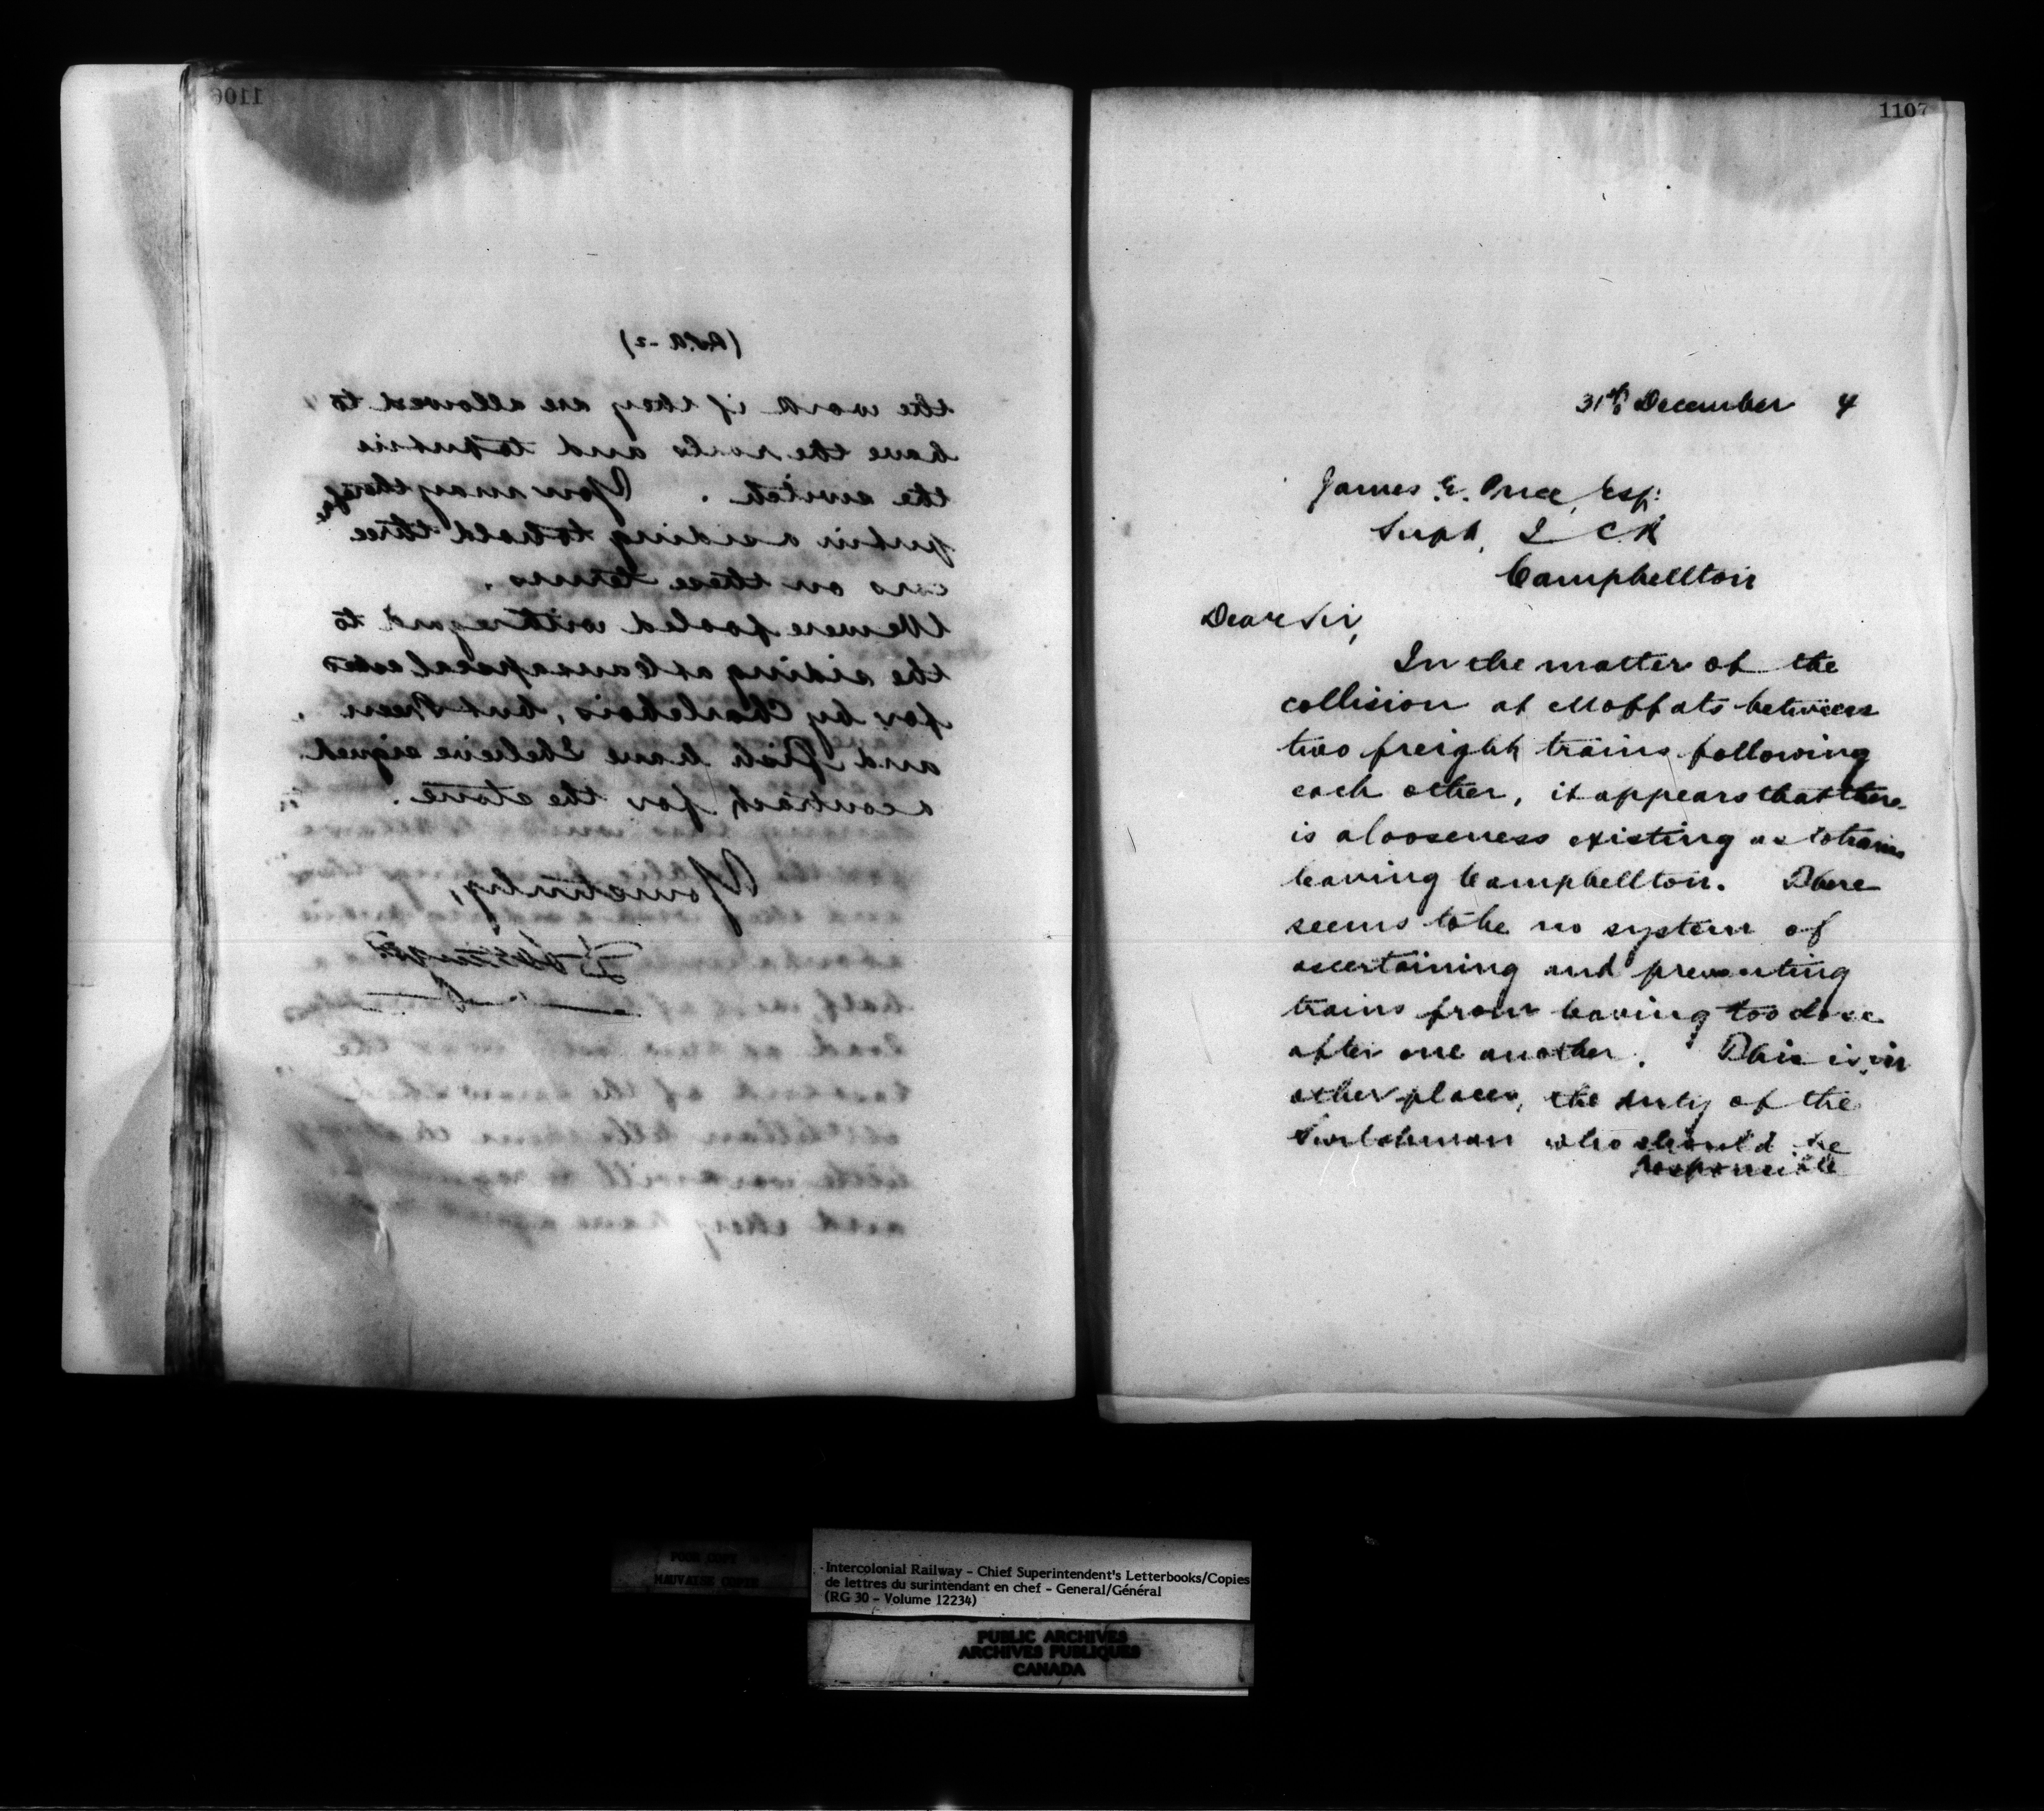 1106
(P.S.A - 2)
the work if they are allowed to
have the rails and to put in
the switch. You may therefore
put in a siding to hold three
cars on these terms.
We were fooled with regard to
the siding at
for by Charlebois, but
and Fish have I believe signed
a contract for the stone.
Yours truly,
1107
31st December 4
James E. Price, Esq:
Supt, I C R
Campbellton
Dear Sir,
In the matter of the
collision at Moffats between
two freight trains following
each other, it appears that there
is a looseness existing as to trains
leaving Campbellton. There
seems to be no system of
ascertaining and preventing
trains from leaving too close
after one another. This is, in
other places, the duty of the
Switchman who should be
responsible
POOR COPY
MAUVAISE COPIE
Intercolonial Railway - Chief Superintendent's Letterbooks/Copies
de lettres du surintendant en chef - General/Général
(RG 30 - Volume 12234)
PUBLIC ARCHIVES
ARCHIVES PUBLIQUES
CANADA